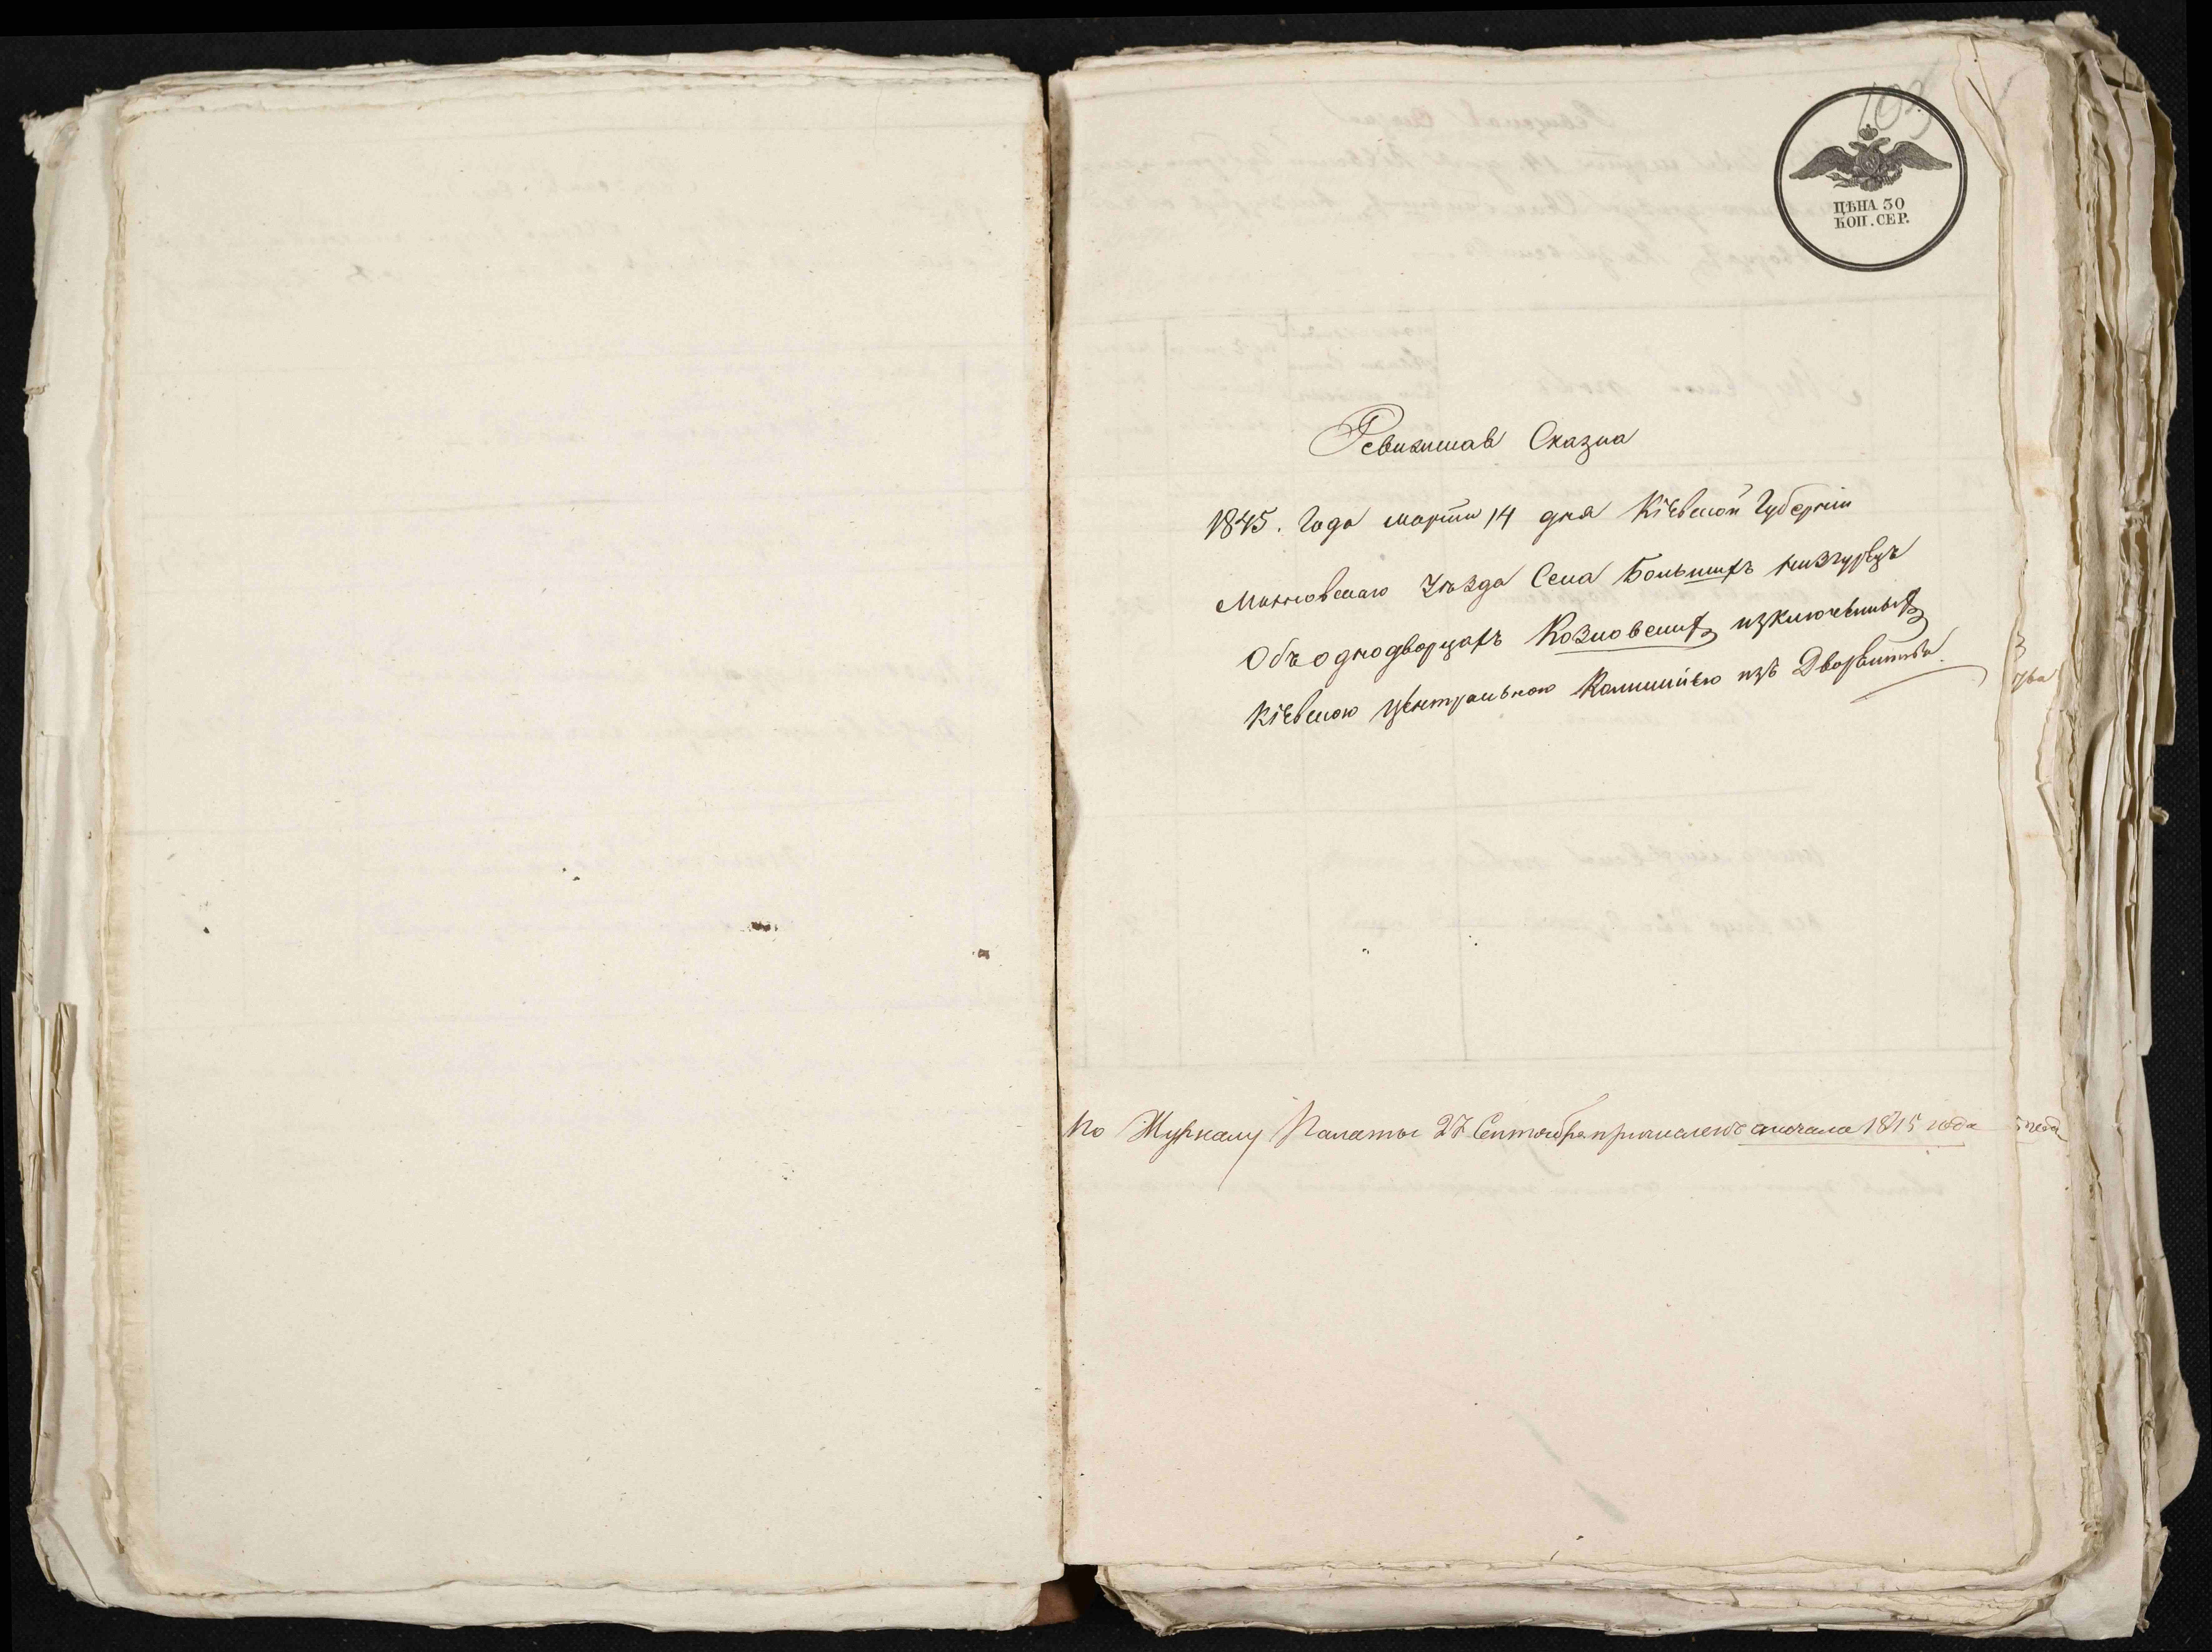 103
ЦѢНА 30
КОП. СЕР.
Ревизкая Сказка
1845. Года марта 14 дня Кіевской Губерніи
Махновскаго Уѣзда Села Большихъ Низгурецъ
Объ однодворцахъ Козловскихъ изключенныхъ
Кіевскою Центральною Коммисіею изъ Дворянства
По Журналу Палаты 27 Сентября причислены съ начала 1845 года